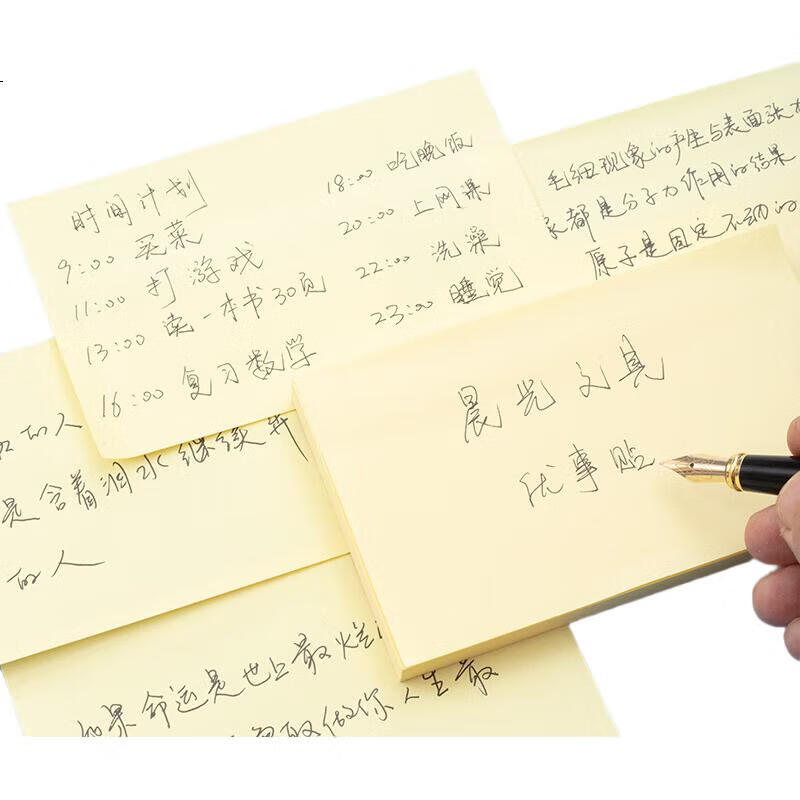 时间计划
9:00 买菜
11:00 打游戏
13:00 读一本书30页
16:00 复习数学
18:00 吃晚饭
20:00 上网课
22:00 洗澡
23:00 睡觉
毛细现象的产生与表面张力
都是分子力作用的结果
原子是固定不动的
晨光文具
优事贴
的人
是含着泪水继续奔
的人
如果命运是世上最烂
取做你人生最